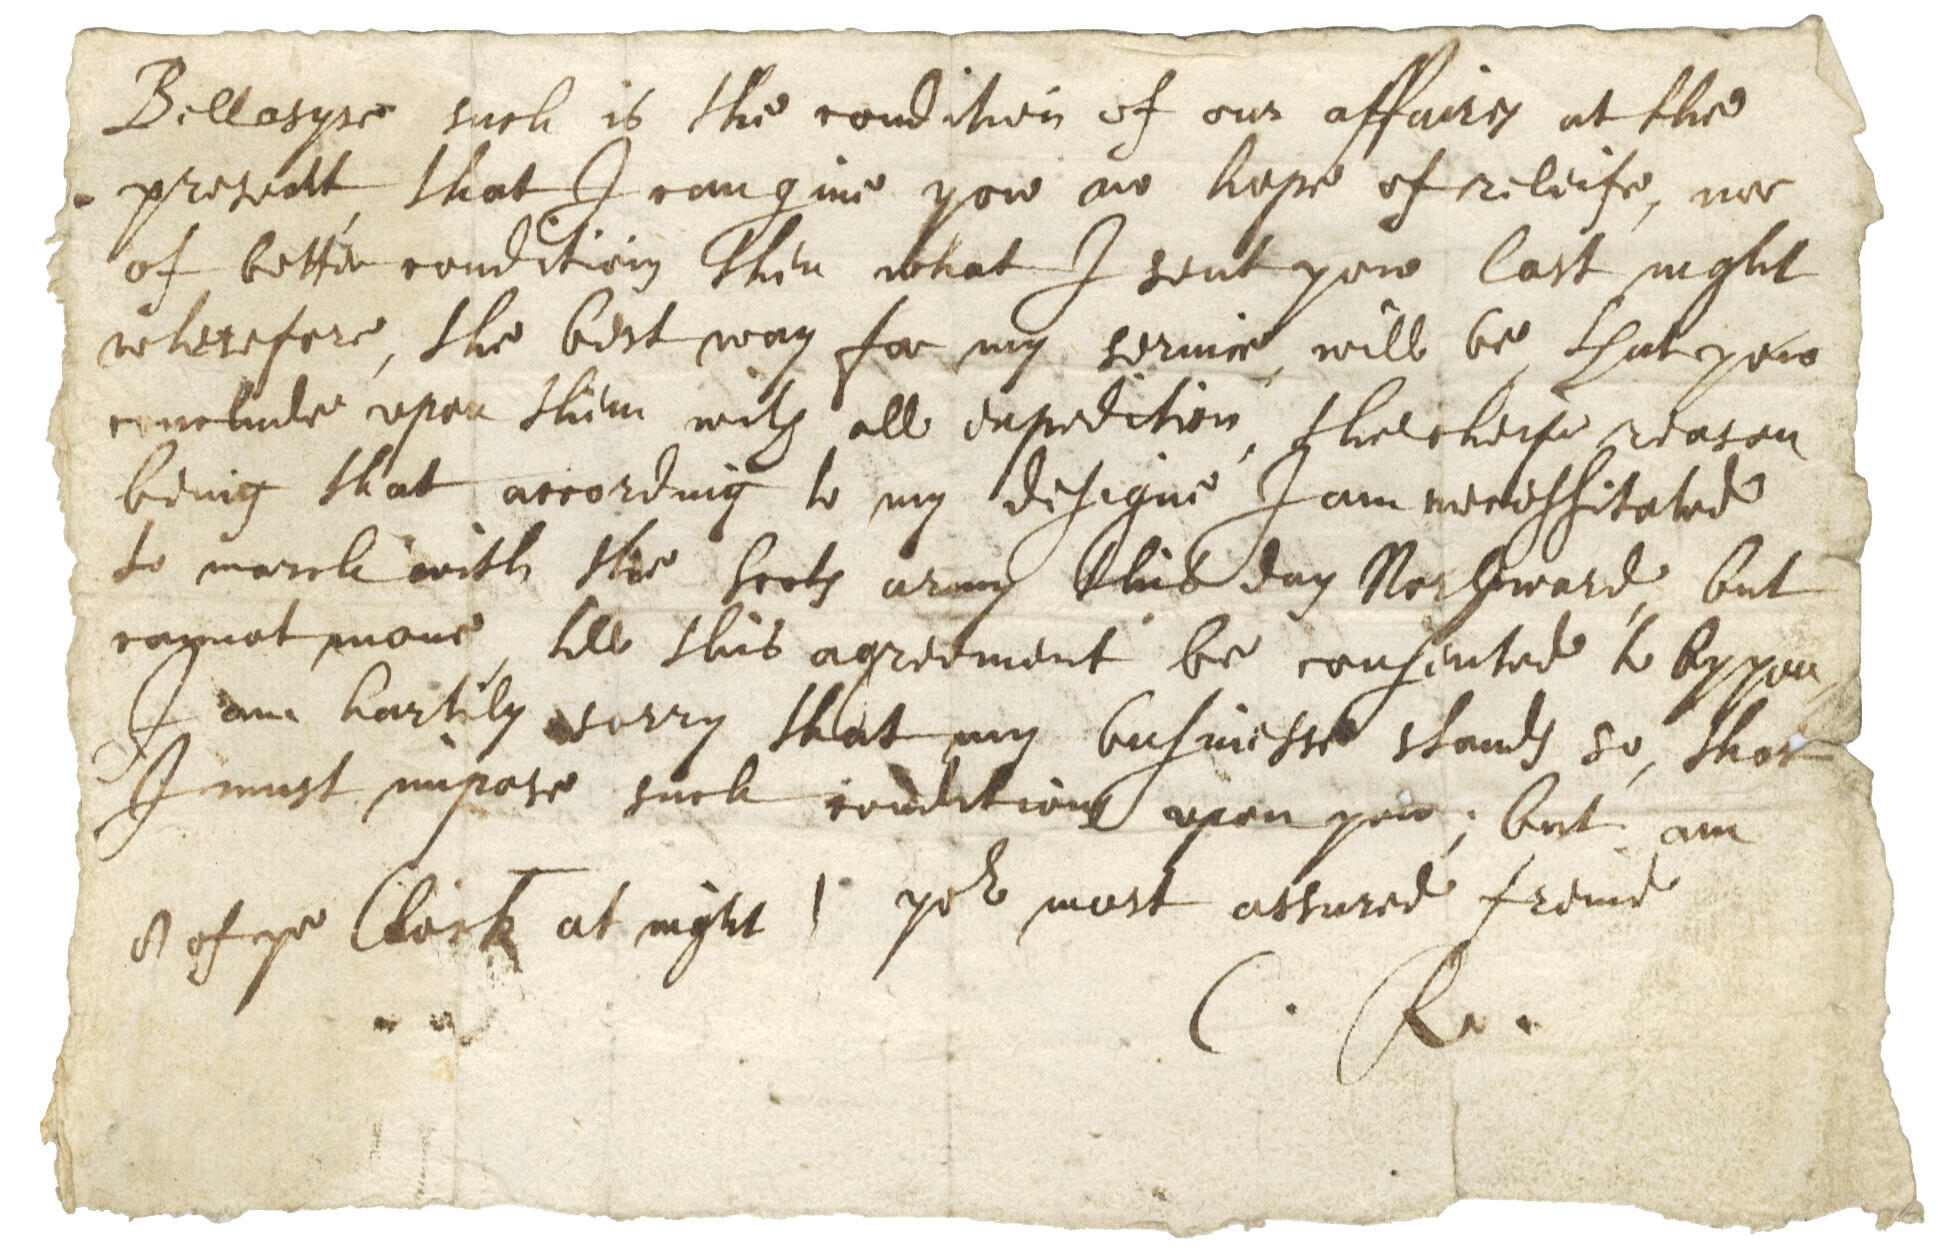 Bellasyse such is the condition of our affaires at the
present, that I can give yow no hope of releife, nor
of better conditions then what I sent yow last night
wherefore, the best way for my service, will be, that yow
conclude upon them with all expedition, the cheife reason
being that according to my designe I am necessitated
to march with the Scots army this day Northward, but
cannot move, till this agreement be consented to by you,
I am hartily sorry that my businesse stands so, that
I must impose such conditions upon yow; but am
8 of ye Clock at night | yor most assured freind
C. R.